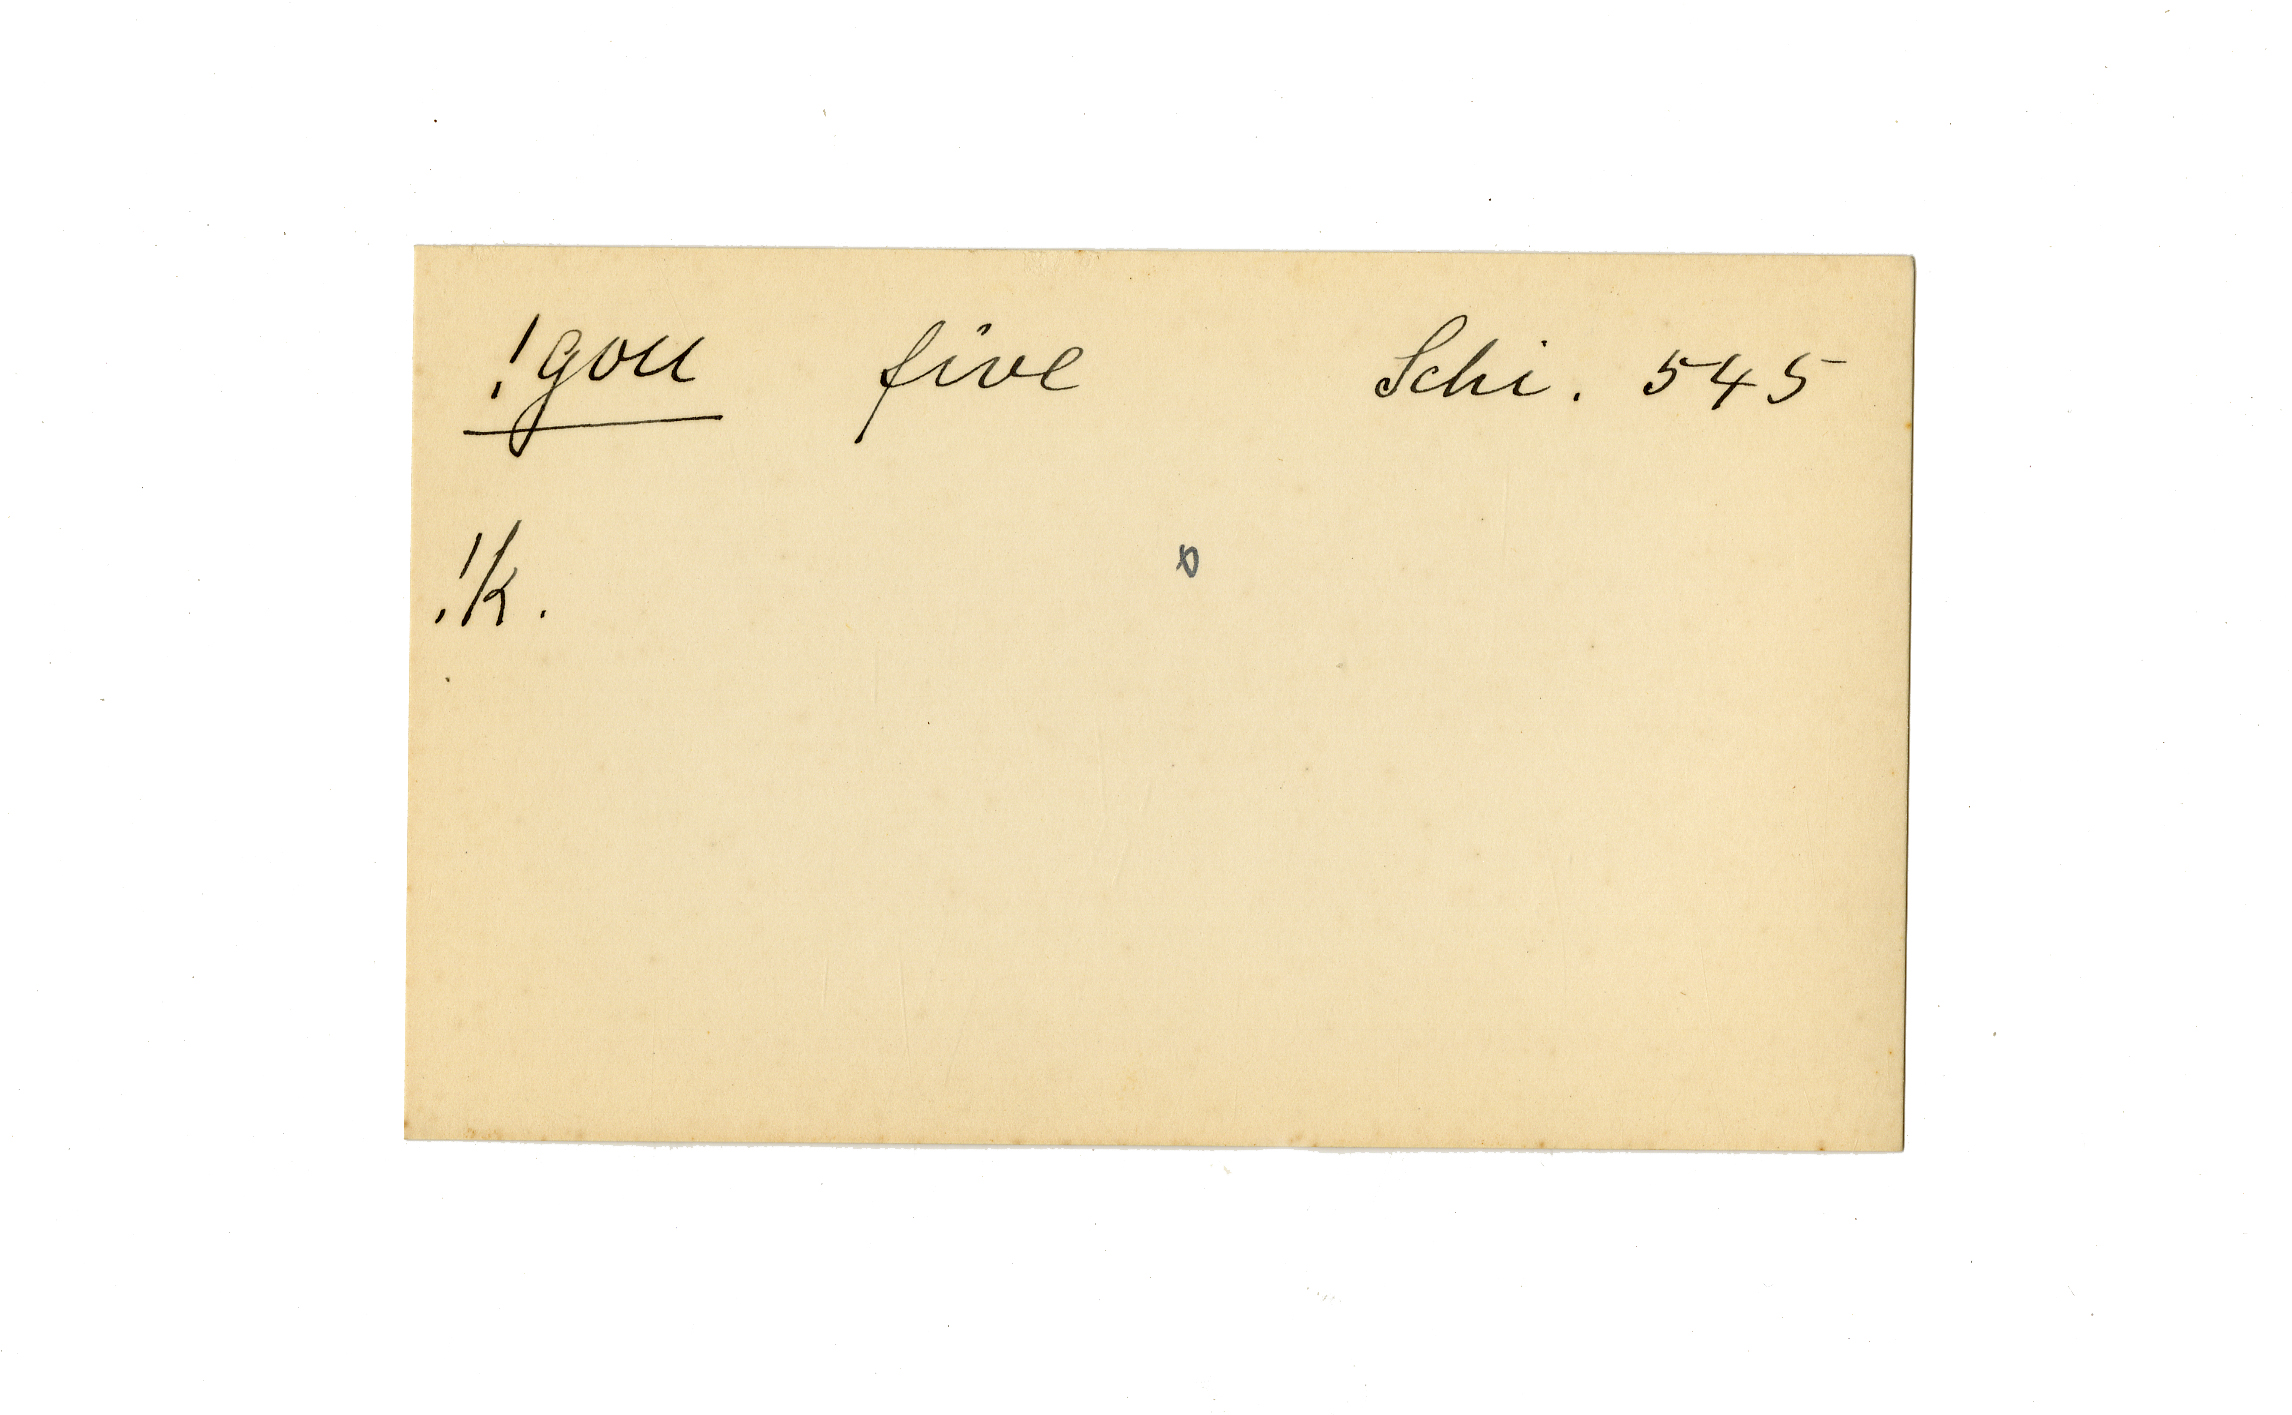 !gou five Schi. 545
!k.